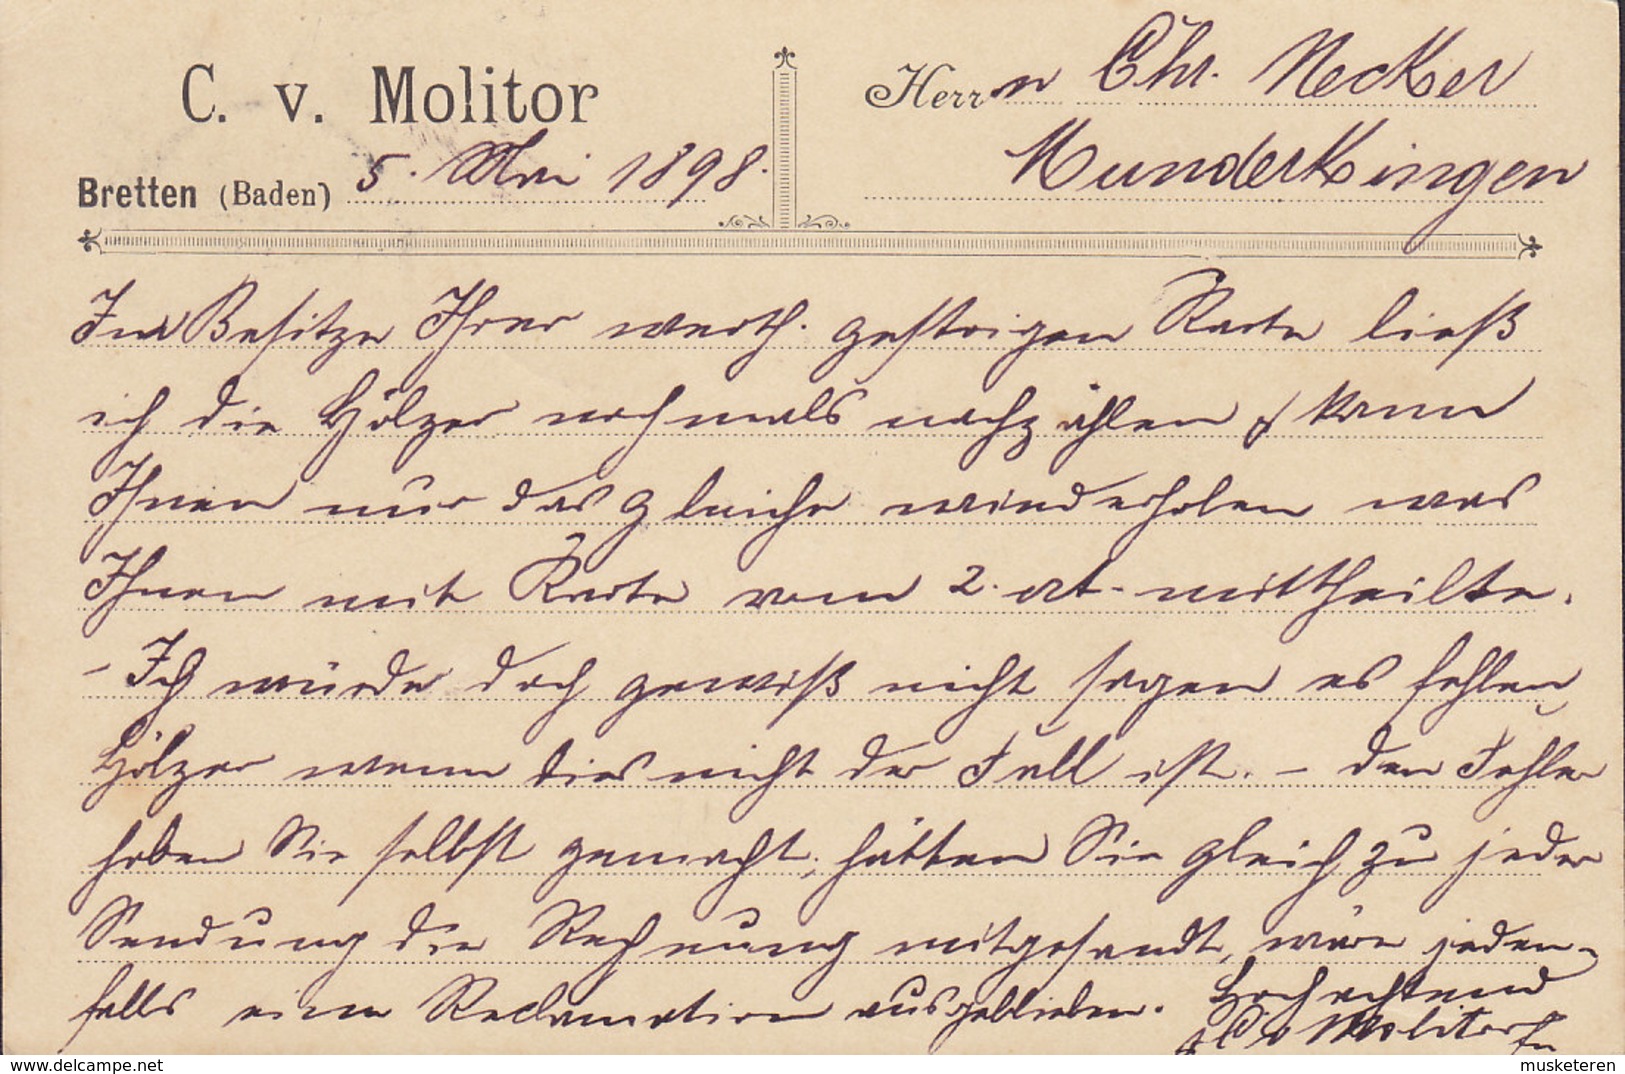 C. v. Molitor
Bretten (Baden) 5. Mai 1898.
Herrn Chr. Necker
Munderkingen
Im Besitze Ihrer werth. gestrigen Karte ließ
ich die Hölzer nochmals nachzählen & kann
Ihnen nur das gleiche wiederholen was
Ihnen mit Karte vom 2. ct. mittheilte.
- Ich würde doch gewiß nicht sagen es fehlen
Hölzer wenn dies nicht der Fall ist. - den Fehler
haben Sie selbst gemacht, hätten Sie gleich zu jeder
Sendung die Rechnung mitgesandt, wäre jeden-
falls eine Reclamation ausgeblieben.
Hochachtend
C v Molitor
musketeren
delcampe.net